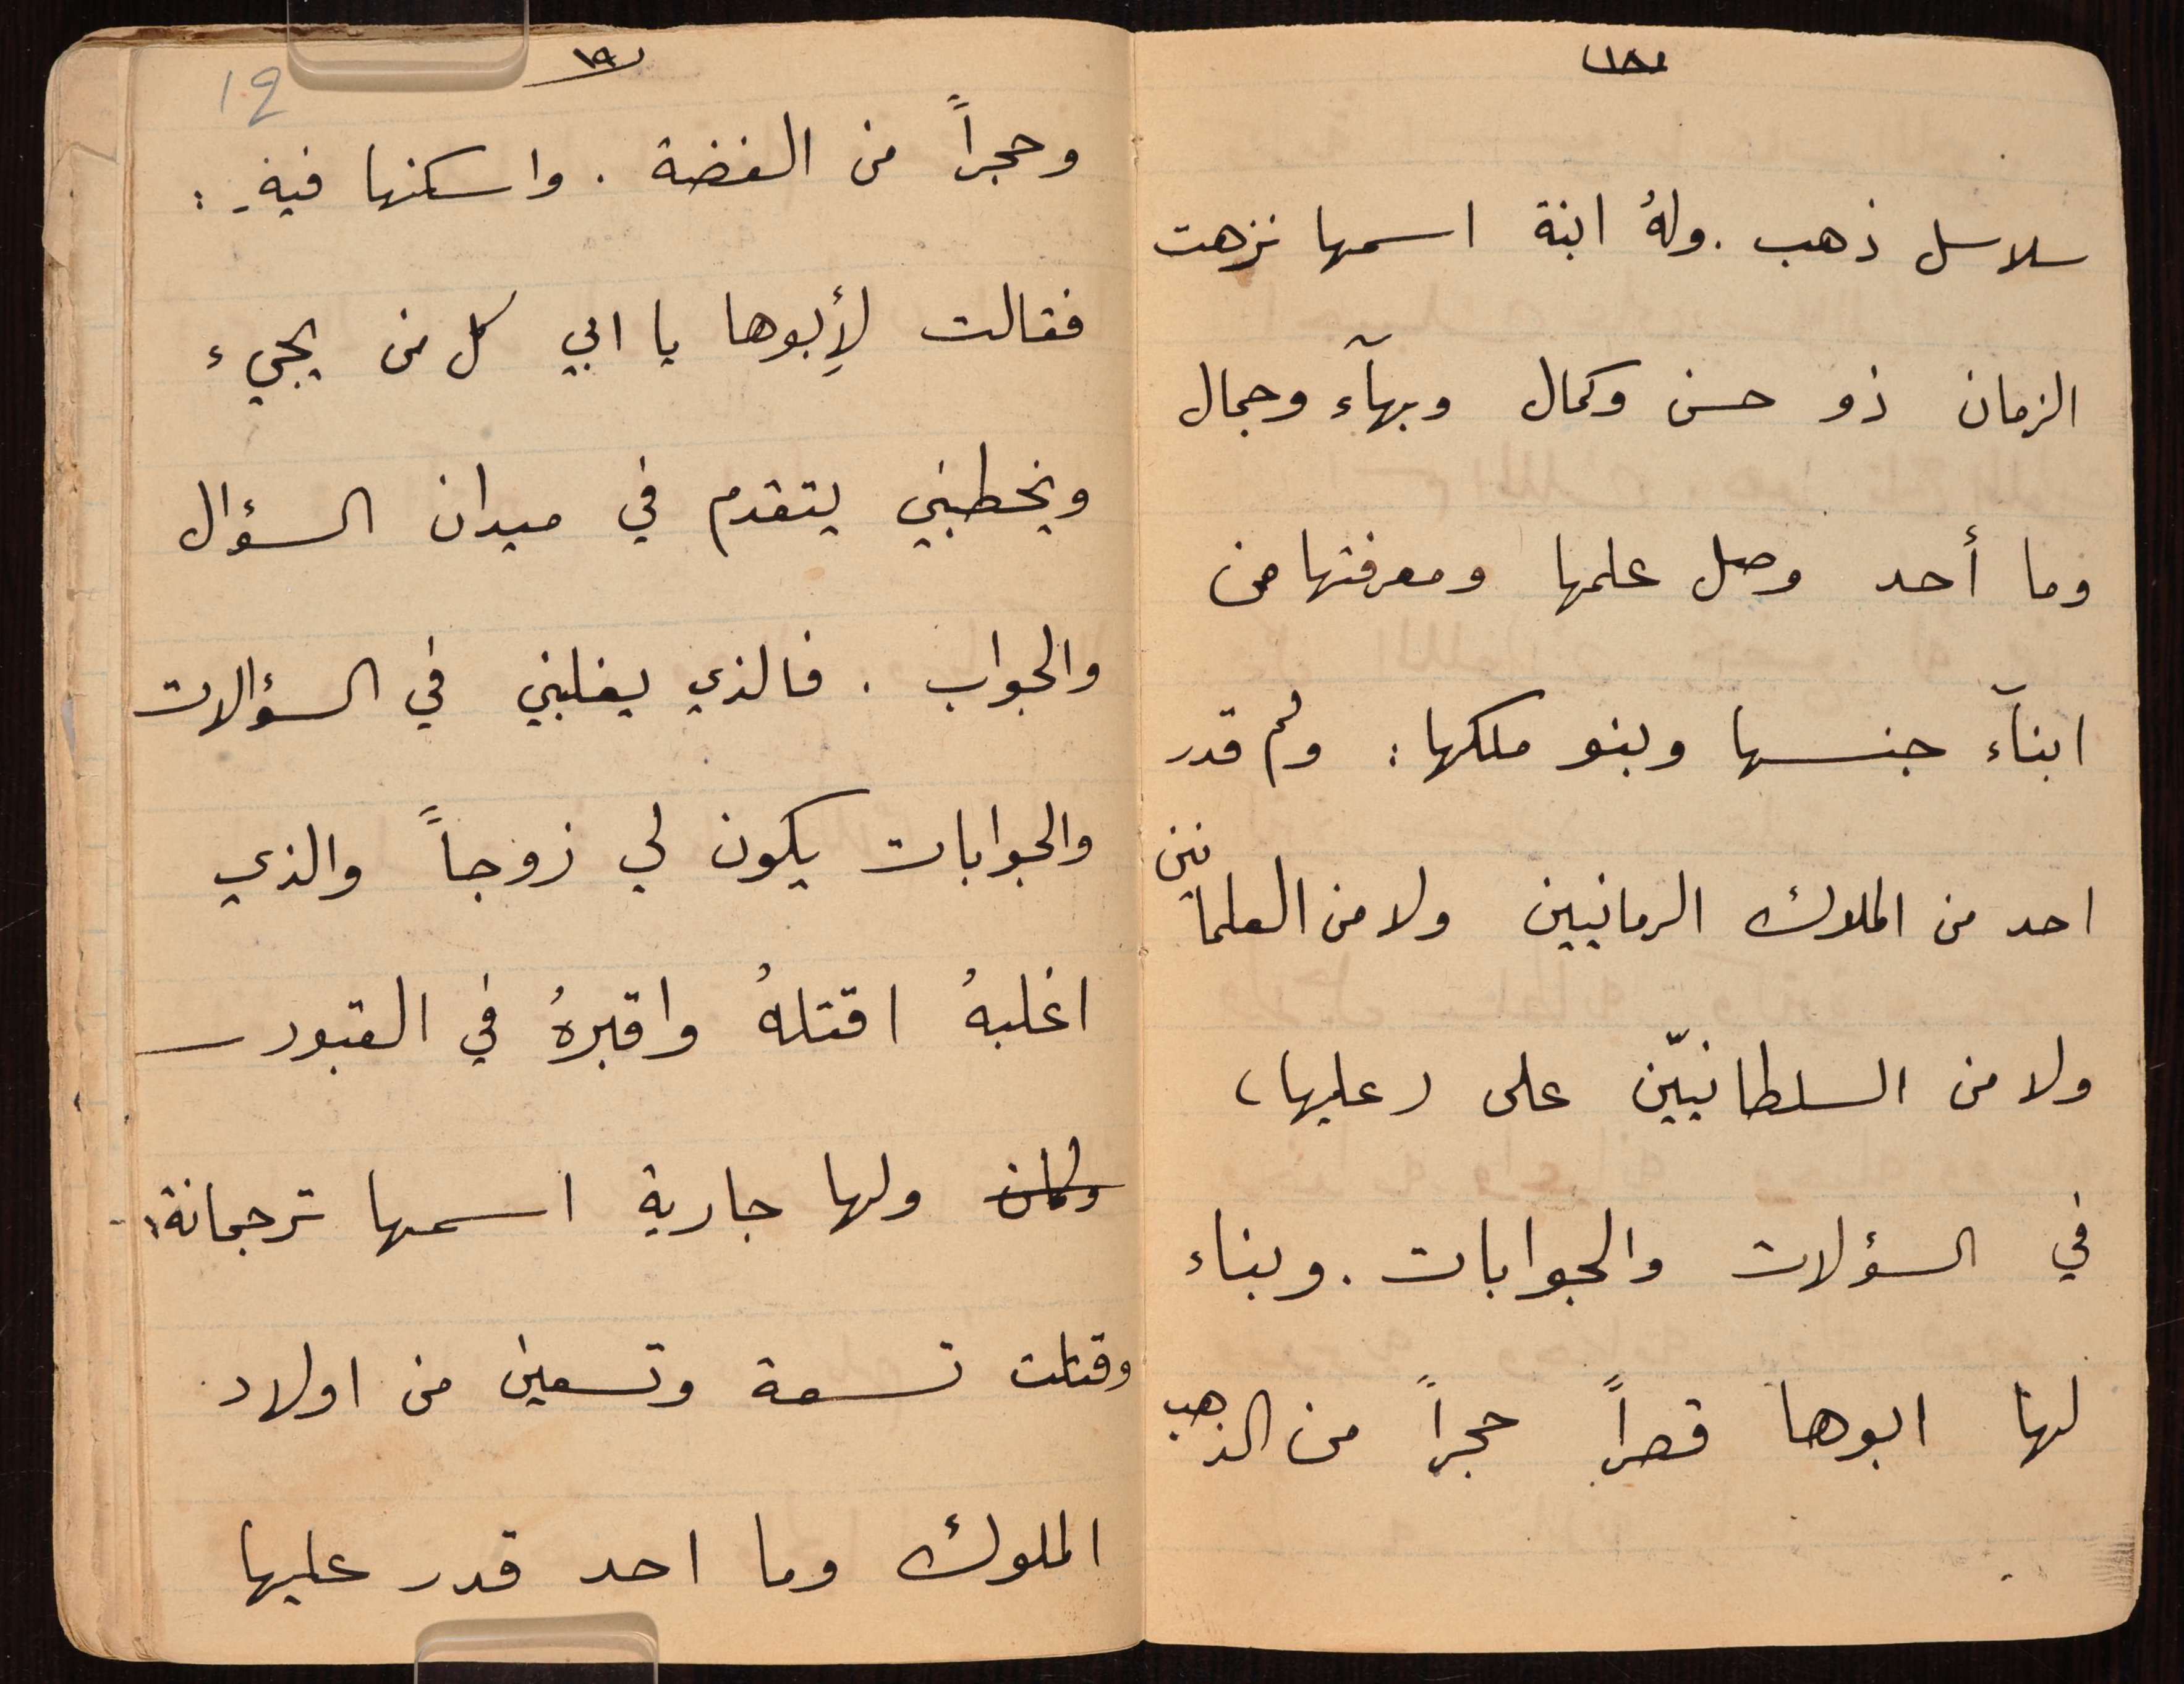 ١٨
سلاسل ذهب . ولهُ ابنة اسمها نزهت
الزمان ذو حسن وكمال وبهآء وجمال
وما أحد وصل علمها ومعرفتها من
ابنآء جنسها وبنو ملكها : ولم قدر
احد من الملوك الرمانيين ولا من العلمانين
ولا من السلطانيّن على (عليها)
في السؤلات والجوابات . وبناء
لها ابوها قصراً حجراً من الذهب
١٩
19
وحجراً من الفضة . واسكنها فيهِ :
فقالت لأِبوها يا ابي كل من يجيء
ويخطبني يتقدم في ميدان السؤال
والجواب . فالذي يغلبني في السؤالات
والجوابات يكون لي زوجاً والذي
اغلبهُ اقتلهُ واقبرهُ في القبور
ولها جارية اسمها ترجمانة،
وقتلت تسعة وتسعين من اولاد
الملوك وما احد قدر عليها